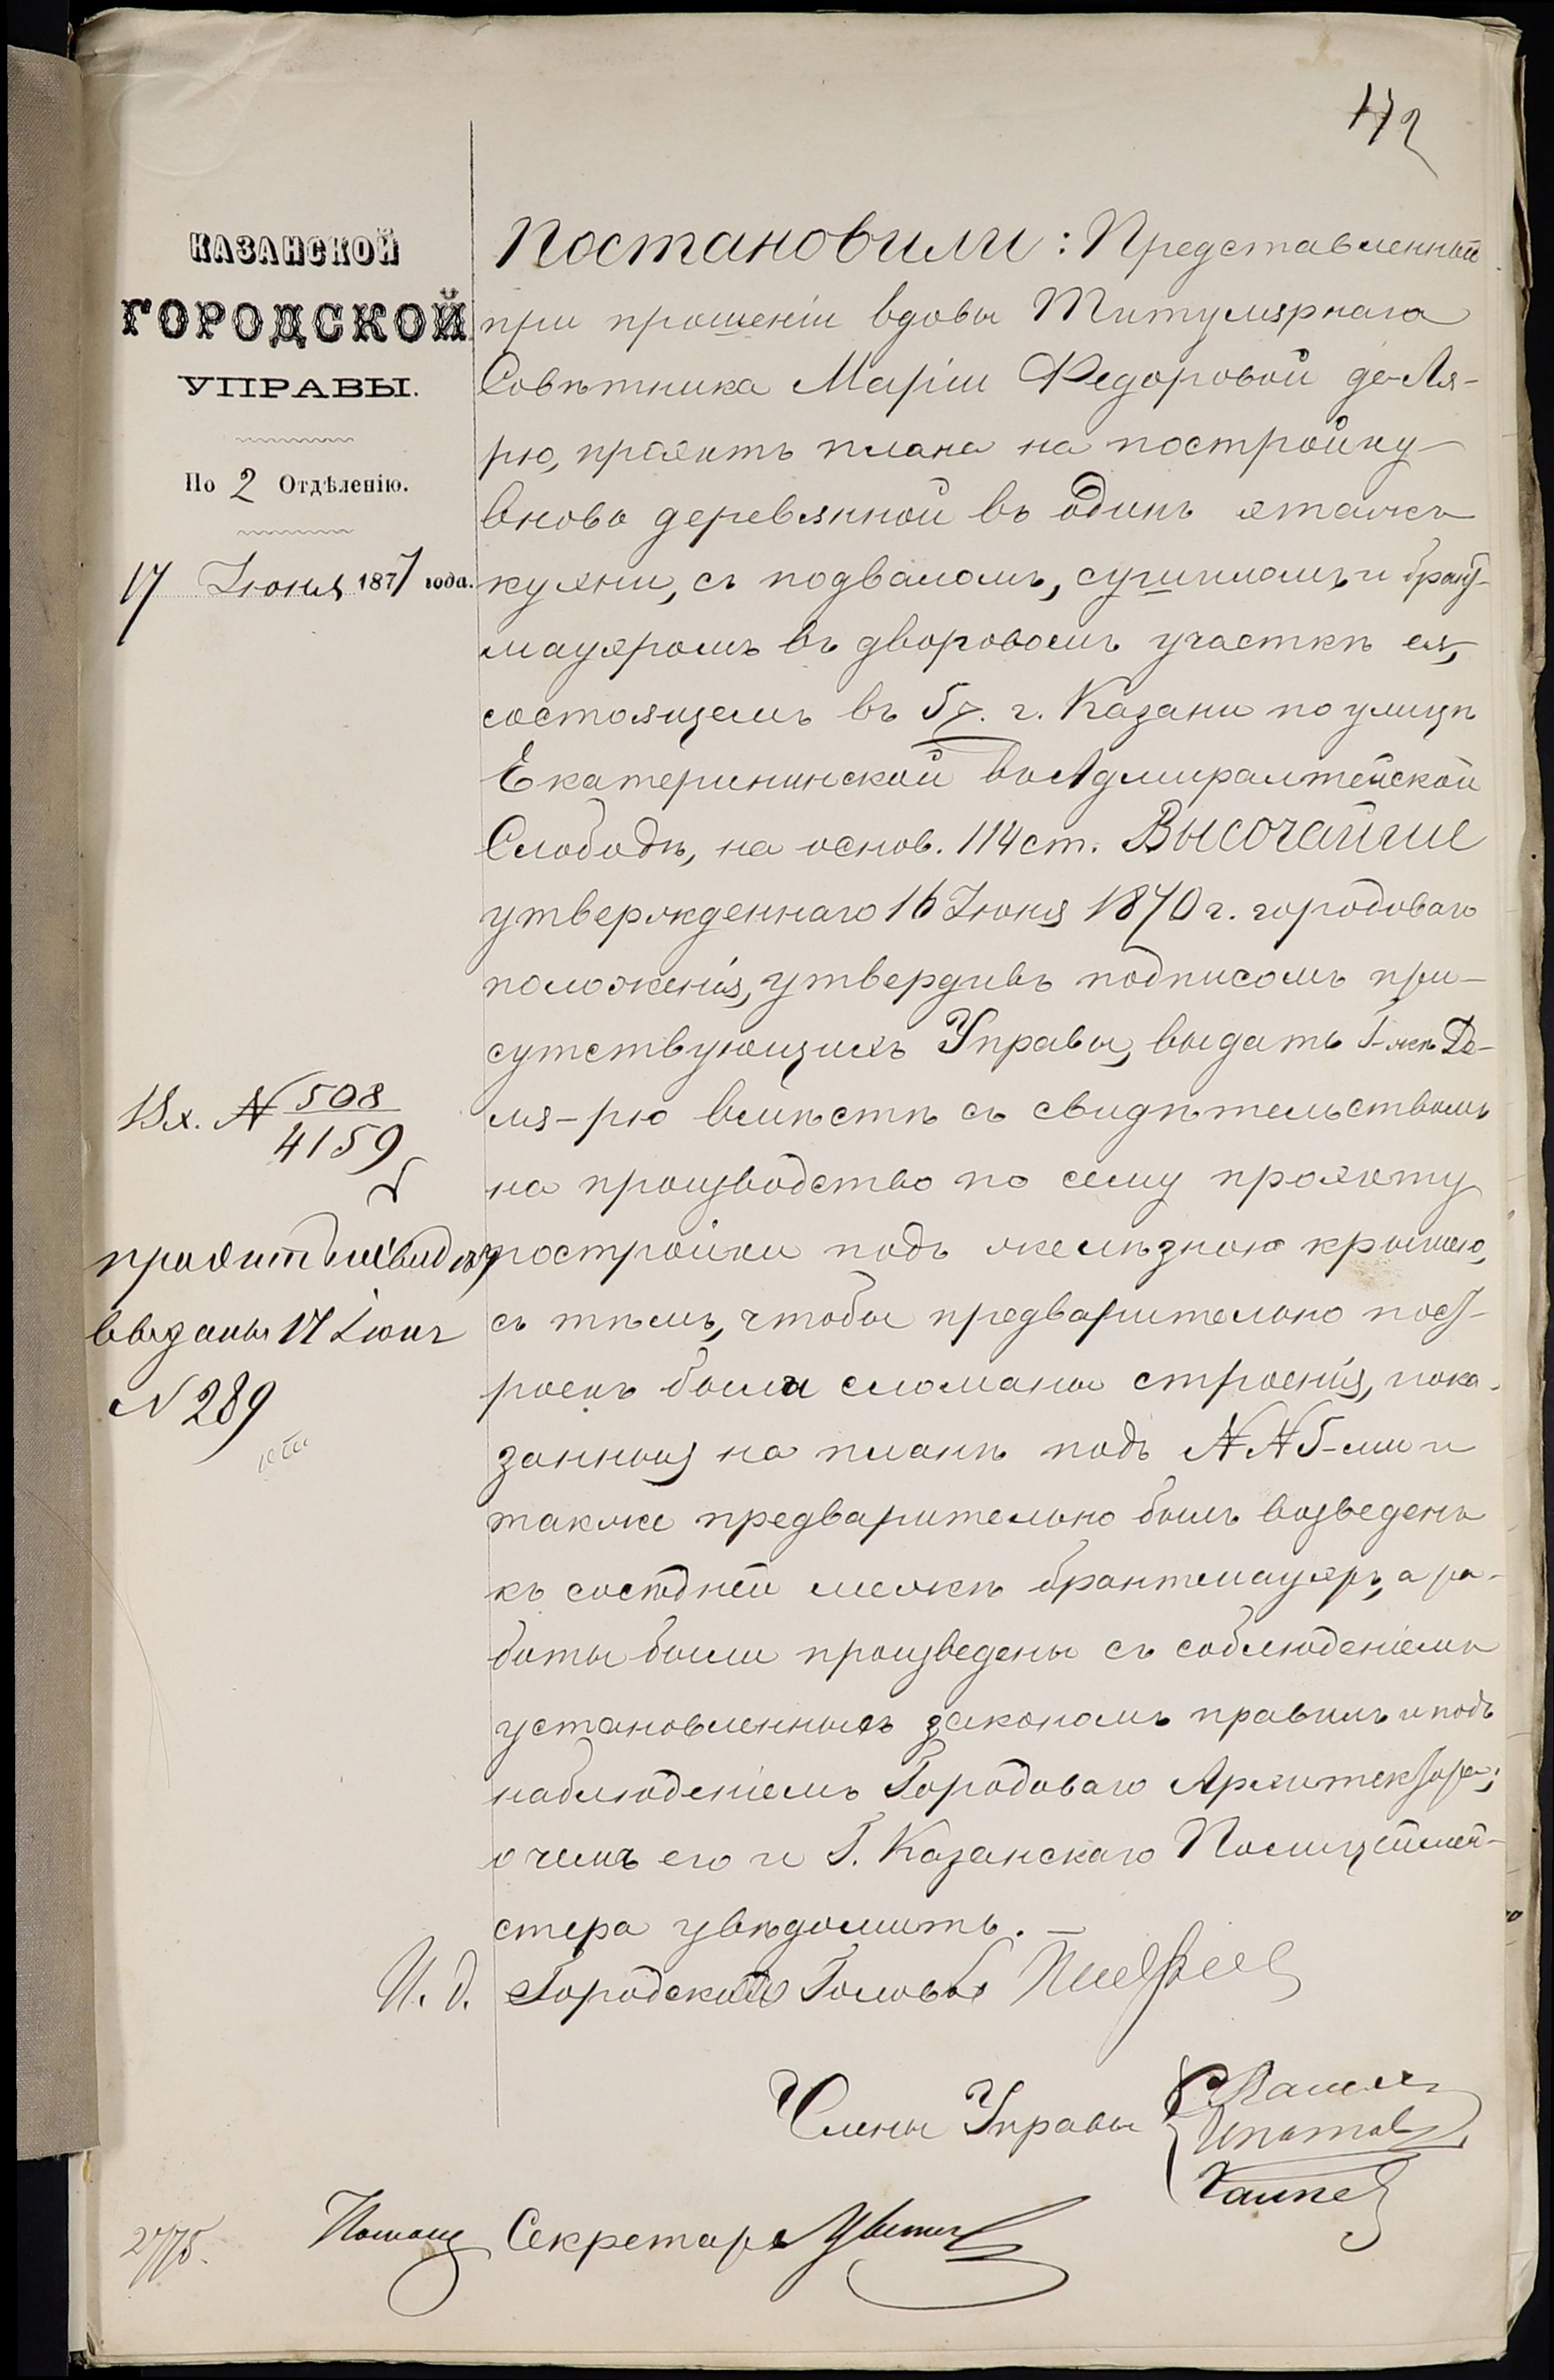 42
КАЗАНСКОЙ
ГОРОДСКОЙ
УПРАВЫ.
По 2 Отдѣленію.
17 Іюня 1877 года.
Постановили: Представленный
при прошеніи вдовы Титулярнаго
Совѣтника Маріи Федоровой де-Ля-
рю, проэктъ плана на постройку
вновь деревянной въ одинъ этажъ
кухни, съ подваломъ, сушиломъ и бранд-
мауэромъ въ дворовомъ участкѣ ея,
состоящемъ въ 5 ч. г. Казани по улицѣ
Екатерининской въ Адмиралтейской
Слободѣ, на основ. 114 ст. Высочайше
утвержденнаго 16 Іюня 1870 г. городоваго
положенія, утвердивъ подписомъ при-
сутствующихъ Управы, выдать Г-жѣ Де-
ля-рю вмѣстѣ съ свидѣтельствомъ
на производство по сему проэкту
постройки подъ желѣзною крышею,
съ тѣмъ, чтобы предварительно пост-
роекъ были сломаны строенія, пока-
занныя на планѣ подъ №№ 5-мъ и
также предварительно былъ возведенъ
къ сосѣдней межѣ брантмауэръ, а ра-
боты были произведены съ соблюденіемъ
установленныхъ закономъ правилъ и подъ
наблюденіемъ Городоваго Архитектора;
о чемъ его и Г. Казанскаго Полицеймей-
стера увѣдомить. –
Вх. № 508
4159
проэктъ и свид
выданы 17 Іюня
№ 289
И. д. Городской Головы
Члены Управы
Ипатовъ
Помощ Секретаря
27/75.